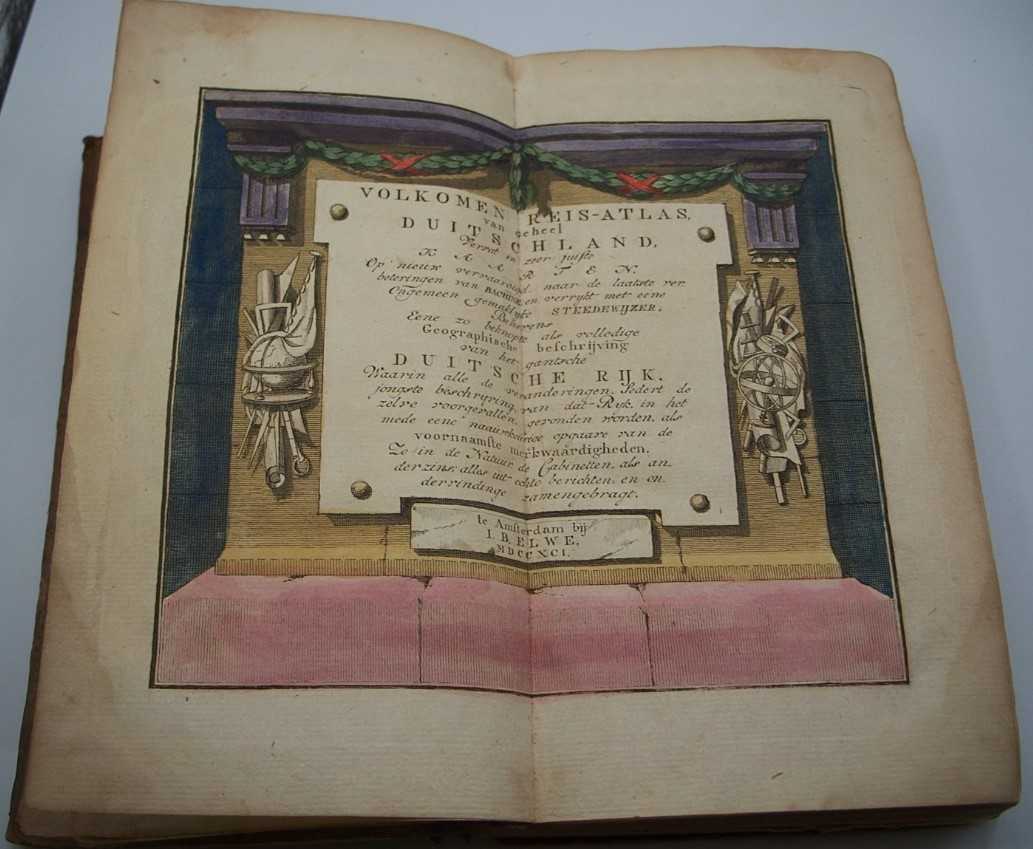 VOLKOMEN REIS-ATLAS,
van geheel
DUITSCHLAND,
Vervat in zeer juiste
KAARTEN:
Op nieuw vervaardigd, naar de laatste ver
beteringen van en verrykt met eene
Ongemeen gemaklyke STEEDEWIJZER,
Benevens
Eene zo beknopte als volledige
Geographische beschrijving
van het gantsche
DUITSCHE RIJK.
Waarin alle de veranderingen, Sedert de
jongste beschryving, van dat-Ryk, in het
zelve voorgevallen, gevonden worden, als
mede eene naauwkeurige opgaave van de
voornaamste merkwaardigheden,
Zo in de Natuur, de Cabinetten, als an
derzins, alles uit echte berichten, en on
dervindinge zamengebragt.
te Amsterdam bij
I. B. ELWE,
MDCCXCI.